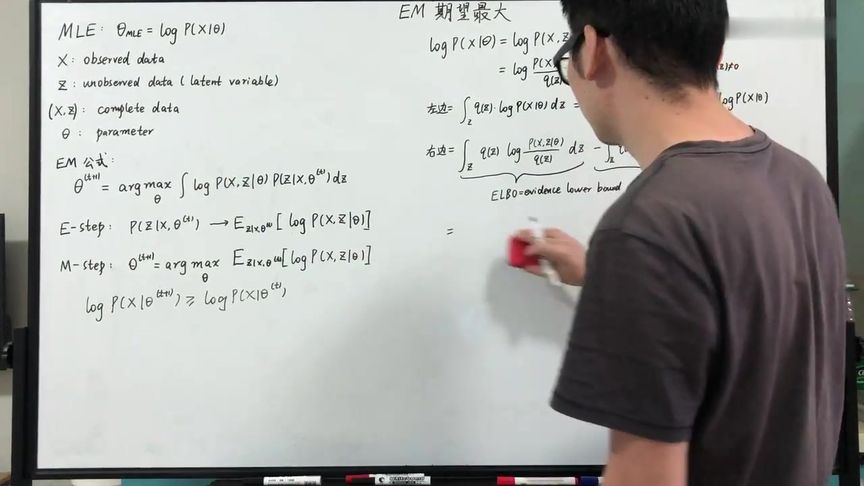 MLE: θ_MLE = log P(X|θ)
X: observed data
Z: unobserved data (latent variable)
(X,Z): complete data
θ: parameter
EM 公式:
θ^(t+1) = arg max_θ ∫ log P(X,Z|θ) P(Z|X,θ^(t)) dz
E-step: P(Z|X,θ^(t)) → E_Z|X,θ^(t) [log P(X,Z|θ)]
M-step: θ^(t+1) = arg max_θ E_Z|X,θ^(t) [log P(X,Z|θ)]
log P(X|θ^(t+1)) ≥ log P(X|θ^(t))
EM 期望最大
log P(X|θ) = log P(X,Z
= log P(X q(z) z)≠0
左边= ∫_Z q(z)·log P(X|θ) dz = log P(X|θ)
右边= ∫_Z q(z) log P(X,Z|θ)/q(z) dz - ∫_Z q(
ELBO=evidence lower bound
=